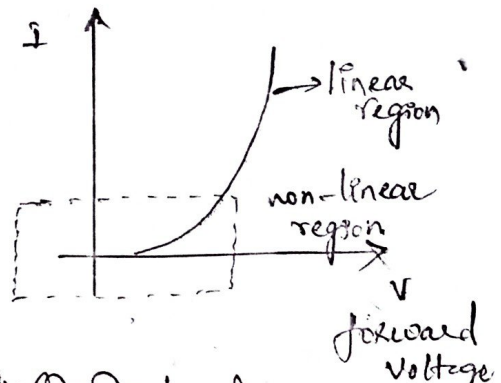 I
linear
region
non-linear
region
V
forward
voltage